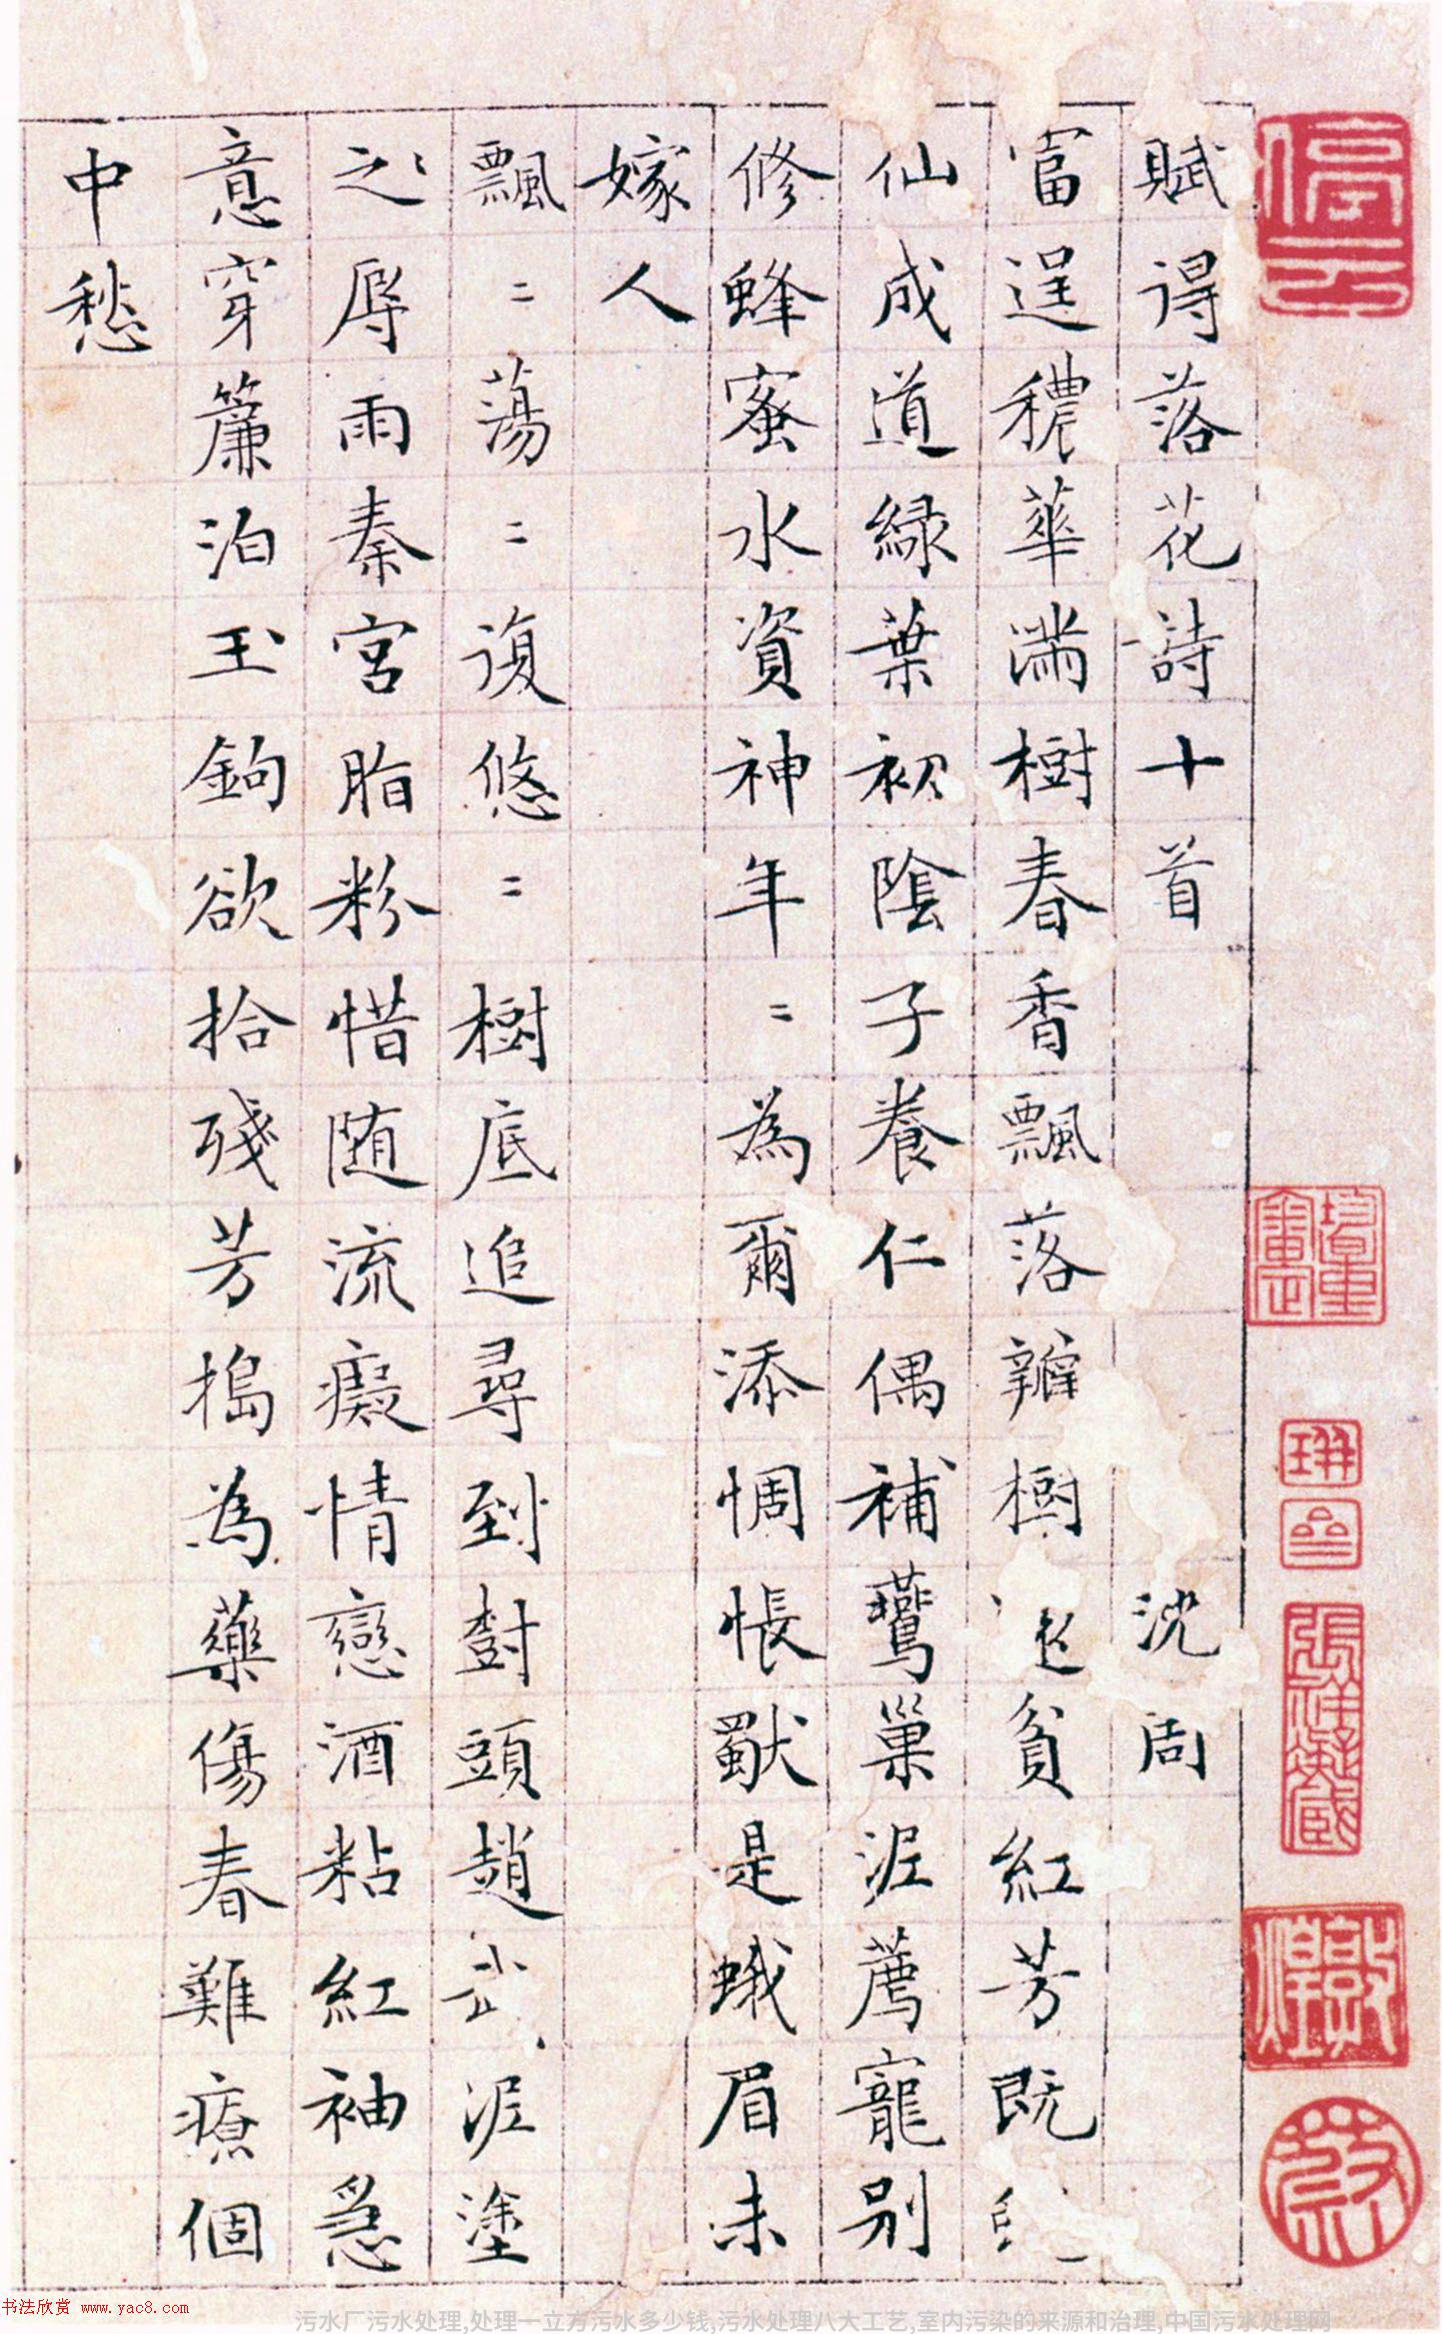 賦得落花詩十首 沈周
富逞穠華滿樹春香飄落瓣樹 貧紅芳既
仙成道綠葉初陰子養仁偶補鶯巢泥薦寵別
修蜂蜜水資神年〻為爾添惆悵獸是蛾眉未
嫁人
飄〻蕩〻復悠〻樹底追尋到樹頭趙 泥塗
之辱雨秦宮脂粉惜隨流癡情戀酒粘紅袖急
意穿簾泊玉鉤欲拾殘芳搗為藥傷春難療個
中愁
停云
书法欣赏 www.yac8.com
污水厂污水处理,处理一立方污水多少钱,污水处理八大工艺,室内污染的来源和治理,中国污水处理网